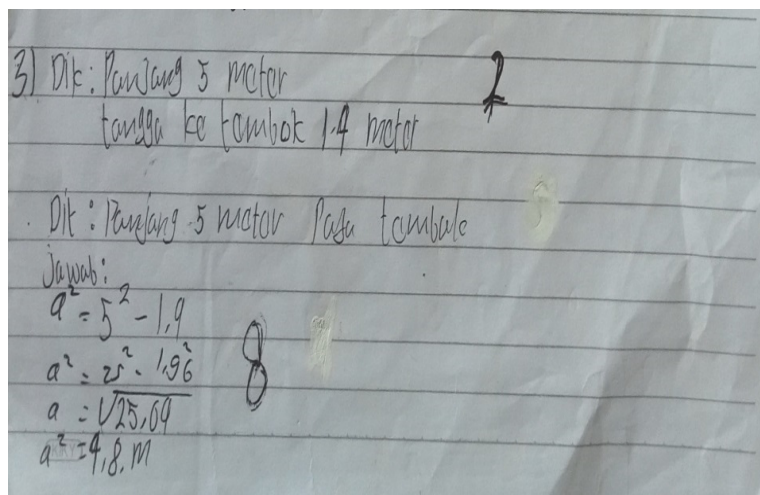 3) Dik: Panjang 5 meter
tangga ke tembok 1.4 meter
2
Dit: Panjang 5 meter Pada tembok
Jawab:
a² = 5² - 1,9
a² = 25² - 1,96²
8
a = √25,69
a² = 4,8 . m